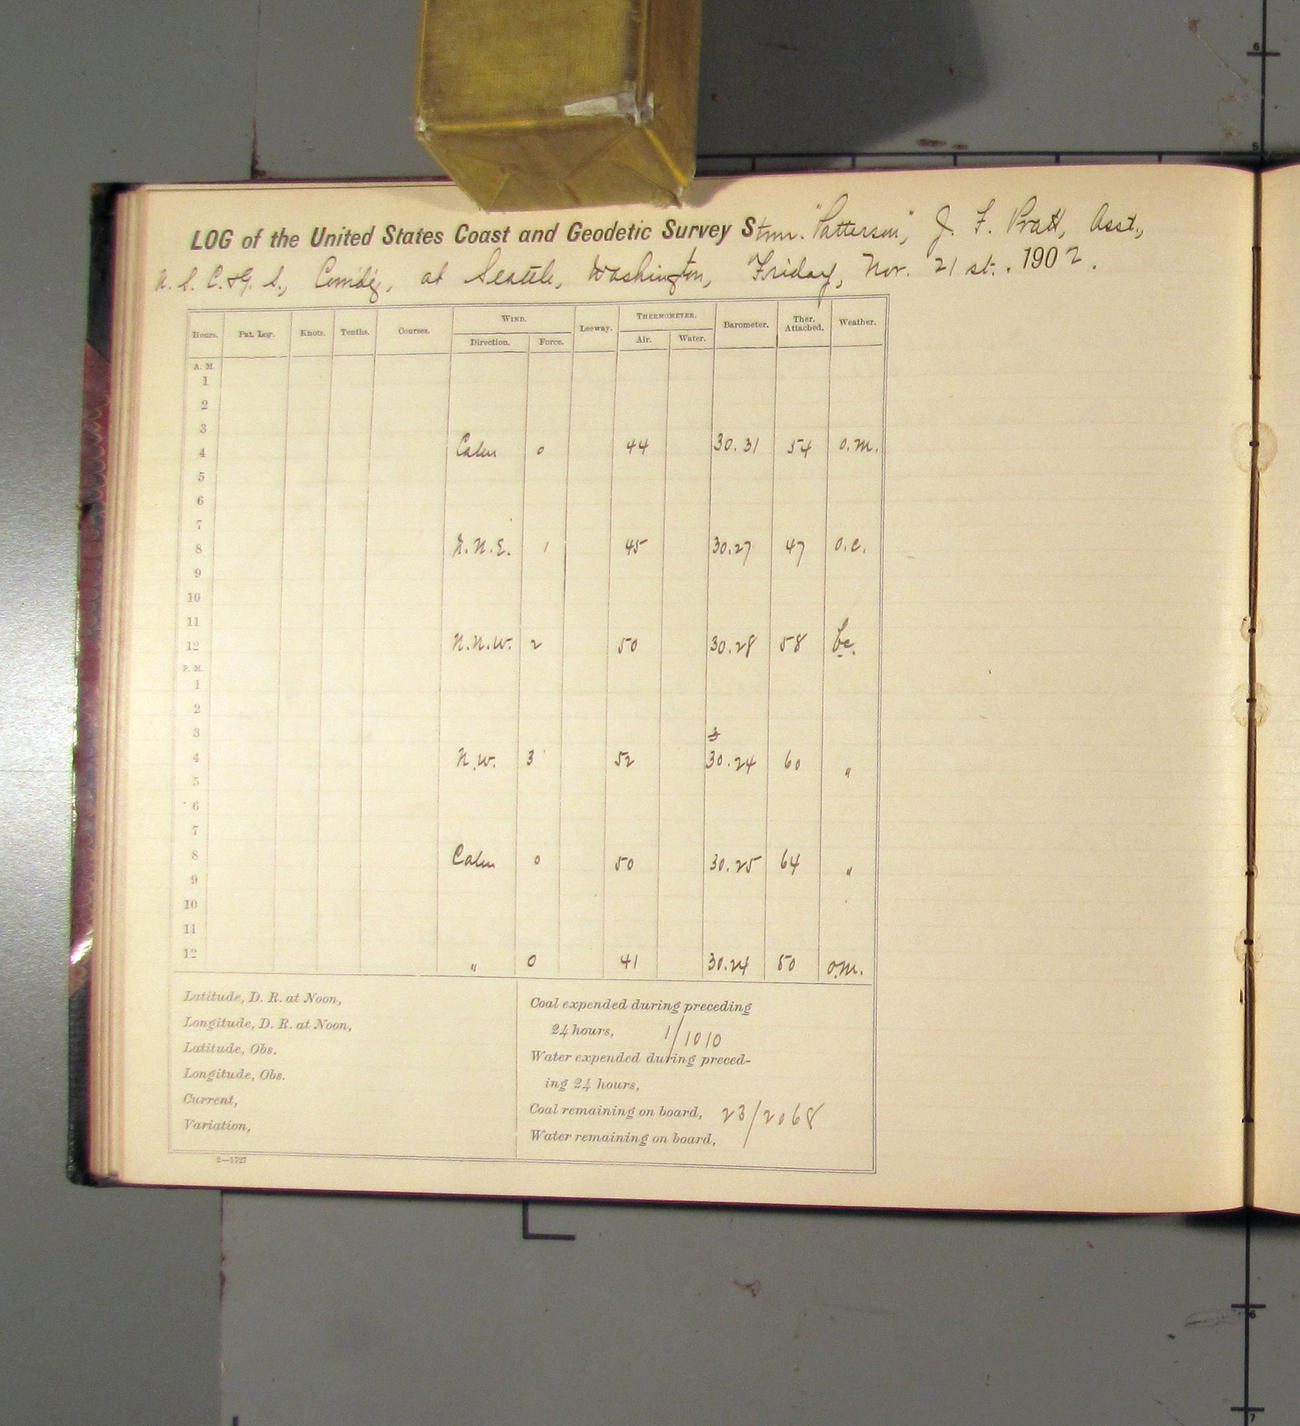 LOG of the United States Coast and Geodetic Survey Stmr. "Patterson", J. F. Pratt, Asst.,
U. S. C. & G. S., Comdg, at Seattle, Washington, Friday, Nov. 21 st., 1902.
Hours. Pat. Log. Knots. Tenths. Courses. WIND. Leeway. THERMOMETER. Barometer. Ther. Attached. Weather.
Direction. Force. Air. Water.
A. M.
1
2
3
4 Calm 0 44 30.31 54 o.m.
5
6
7
8 N.N.E. 1 45 30.27 47 o.c.
9
10
11
12 N.N.W. 2 50 30.28 58 bc.
P. M.
1
2
3
4 N.W. 3 52 30.24 60 "
5
6
7
8 Calm 0 50 30.25 64 "
9
10
11
12 " 0 41 30.24 50 o.m.
Latitude, D. R. at Noon,
Longitude, D. R. at Noon,
Latitude, Obs.
Longitude, Obs.
Current,
Variation,
Coal expended during preceding
24 hours, 1/1010
Water expended during preced-
ing 24 hours,
Coal remaining on board, 23/2068
Water remaining on board,
2—1727
6
5
6
7